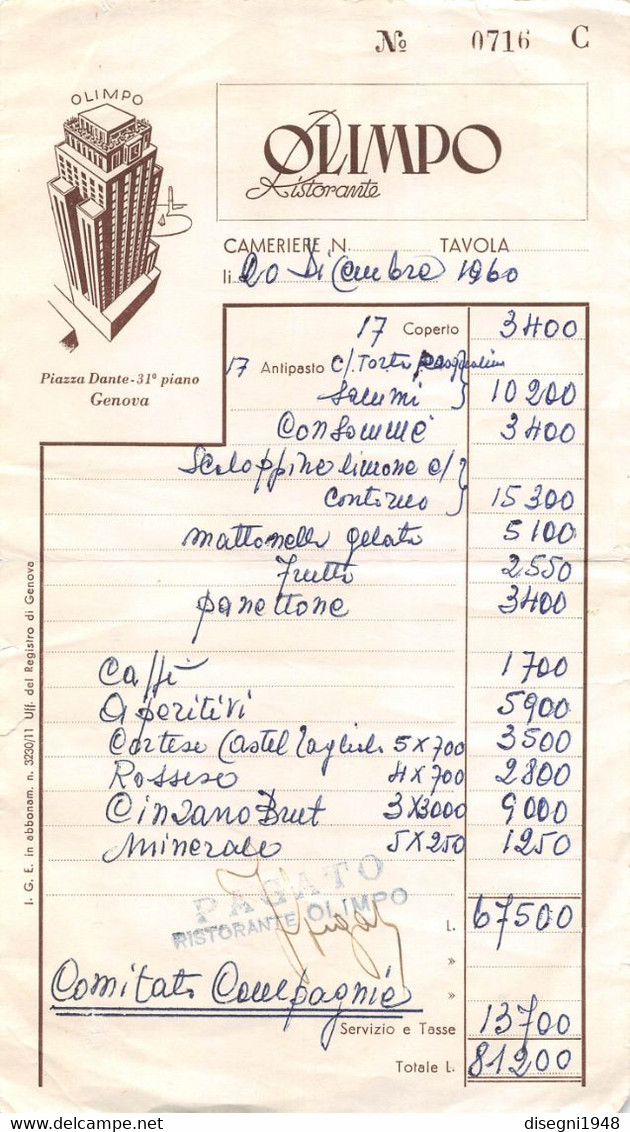 No 0716 C
OLIMPO
OLIMPO
Ristorante
CAMERIERE N. TAVOLA
li 20 Dicembre 1960
Piazza Dante - 31° piano
Genova
17 Coperto 3400
17 Antipasto c/. Torta pasqualina
Salumi } 10200
Consommè 3400
Scaloppine limone c/
contorno } 15300
Mattonella gelato 5100
Frutta 2550
panettone 3400
Caffè 1700
Aperitivi 5900
Cortese Castel Tagliolo 5 x 700 3500
Rossese 4 x 700 2800
Cinzano Brut 3 x 3000 9000
Minerale 5 x 250 1250
PAGATO
RISTORANTE OLIMPO
L. 67500
»
Comitato Compagnie »
Servizio e Tasse 13700
Totale L. 81200
I. G. E. in abbonam. n. 3230/11 Uff. del Registro di Genova
disegni1948